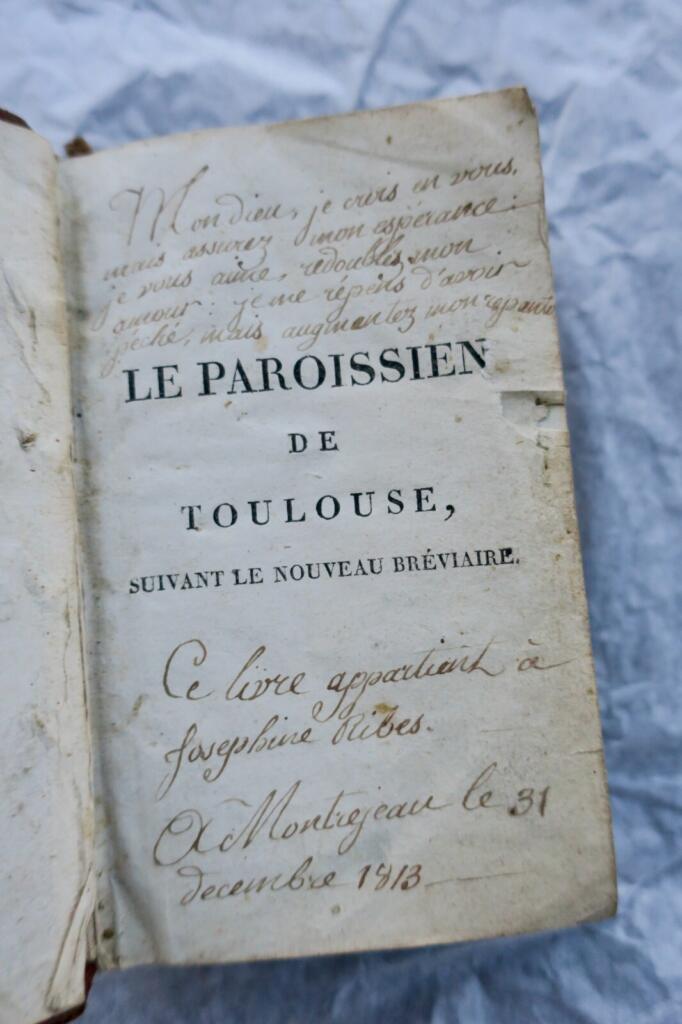 Mon dieu, je crois en vous,
mais assurez mon espérance :
je vous aime, redoublés mon
amour : je me répens d'avoir
peché, mais augmentez mon repenti
LE PAROISSIEN
DE
TOULOUSE,
SUIVANT LE NOUVEAU BRÉVIAIRE.
Ce livre appartient à
Josephine Ribes.
A Montrejeau le 31
decembre 1813